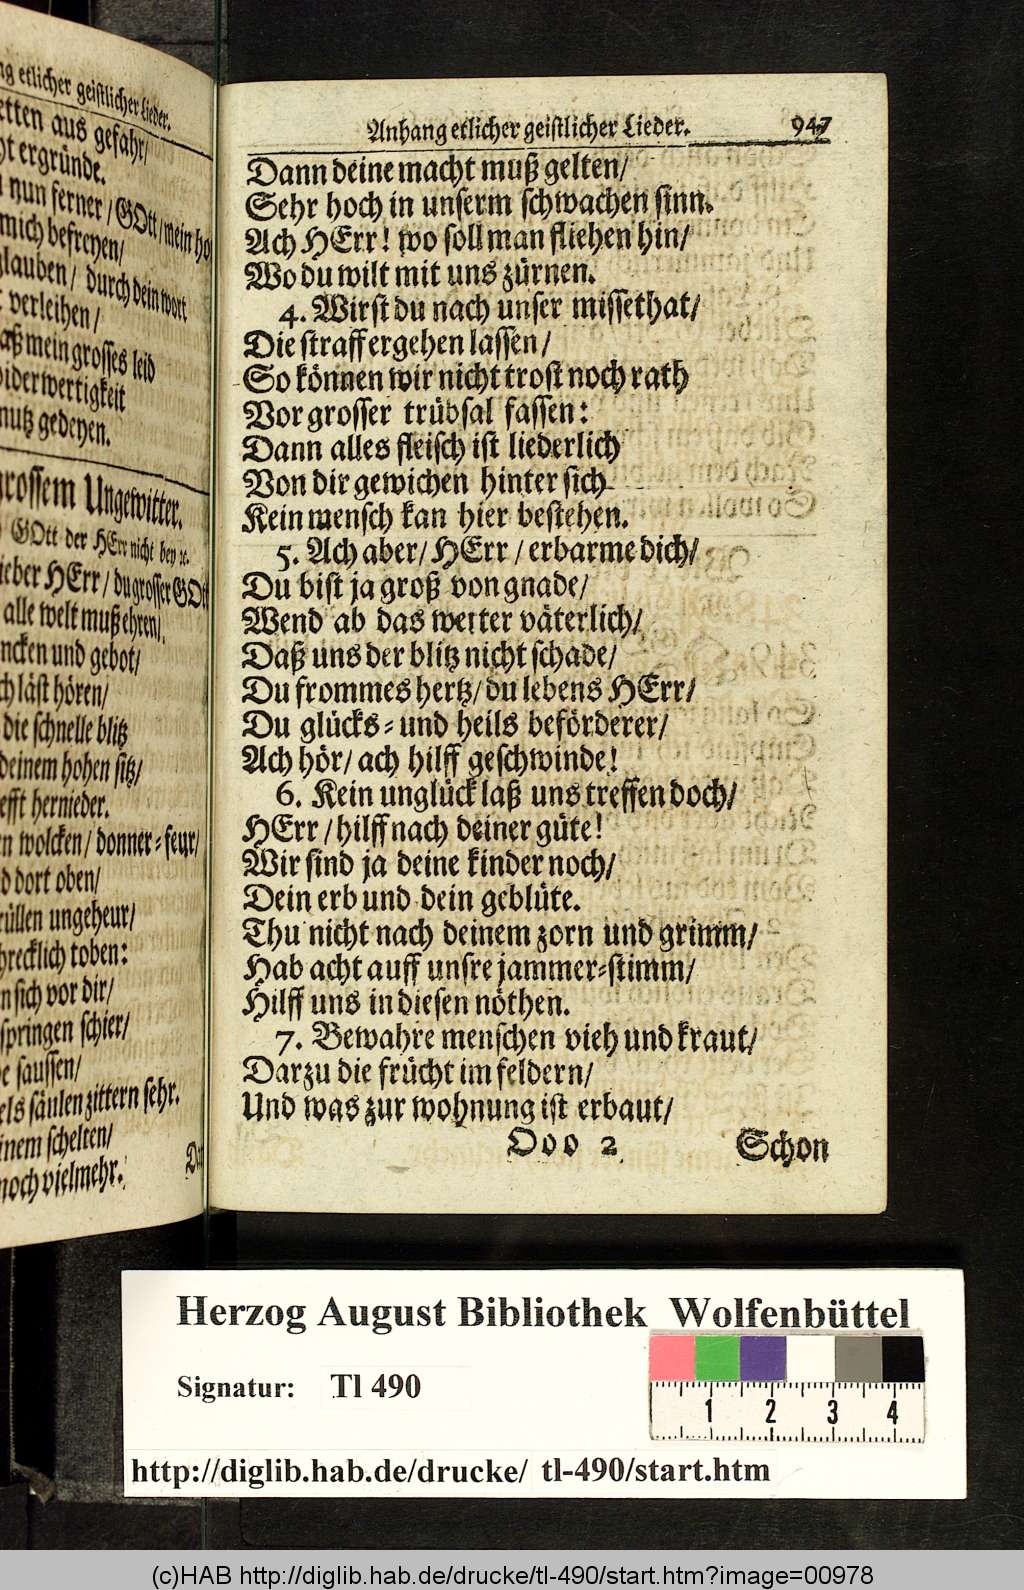 ng etlicher geistlicher Lieder.
etten aus gefahr/
ht ergründe.
nun ferner/ GOtt/ mein ho
mich befreyen/
glauben/ durch dein wort
verleihen/
aß mein grosses leid
iderwertigkeit
nutz gedeyen.
rossem Ungewitter.
GOtt der HErr nicht bey ꝛc.
ieber HErr/ du grosser GOtt
alle welt muß ehren/
ncken und gebot/
ch läst hören/
die schnelle blitz
deinem hohen sitz/
efft hernieder.
en wolcken/ donner-feur/
d dort oben/
rüllen ungeheur/
hrecklich toben:
n sich vor dir/
springen schier/
e saussen/
els säulen zittern sehr.
inem schelten/
noch vielmehr.
Anhang etlicher geistlicher Lieder. 947
Dann deine macht muß gelten/
Sehr hoch in unserm schwachen sinn.
Ach HErr! wo soll man fliehen hin/
Wo du wilt mit uns zürnen.
4. Wirst du nach unser missethat/
Die straff ergehen lassen/
So können wir nicht trost noch rath
Vor grosser trübsal fassen:
Dann alles fleisch ist liederlich
Von dir gewichen hinter sich
Kein mensch kan hier bestehen.
5. Ach aber/ HErr/ erbarme dich/
Du bist ja groß von gnade/
Wend ab das wetter väterlich/
Daß uns der blitz nicht schade/
Du frommes hertz/ du lebens HErr/
Du glücks- und heils beförderer/
Ach hör/ ach hilff geschwinde!
6. Kein unglück laß uns treffen doch/
HErr/ hilff nach deiner güte!
Wir sind ja deine kinder noch/
Dein erb und dein geblüte.
Thu nicht nach deinem zorn und grimm/
Hab acht auff unsre jammer-stimm/
Hilff uns in diesen nöthen.
7. Bewahre menschen vieh und kraut/
Darzu die frücht im feldern/
Und was zur wohnung ist erbaut/
Ooo 2 Schon
Herzog August Bibliothek Wolfenbüttel
Signatur: Tl 490
1 2 3 4
http://diglib.hab.de/drucke/ tl-490/start.htm
(c)HAB http://diglib.hab.de/drucke/tl-490/start.htm?image=00978